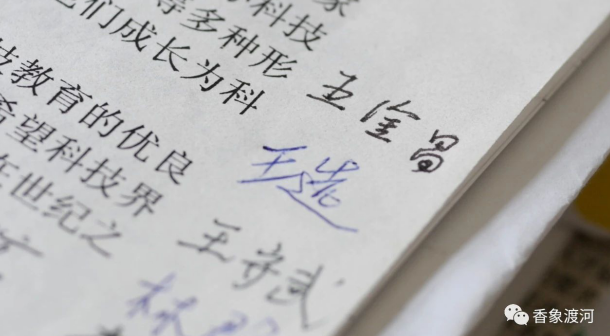 家
科技
等多种形
们成长为科
技教育的优良
希望科技界
世纪之
王淦昌
王选
王守武
林
香象渡河